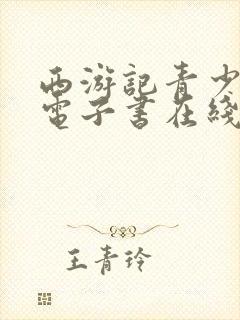 西游記青少
電子書在綫
王青玲